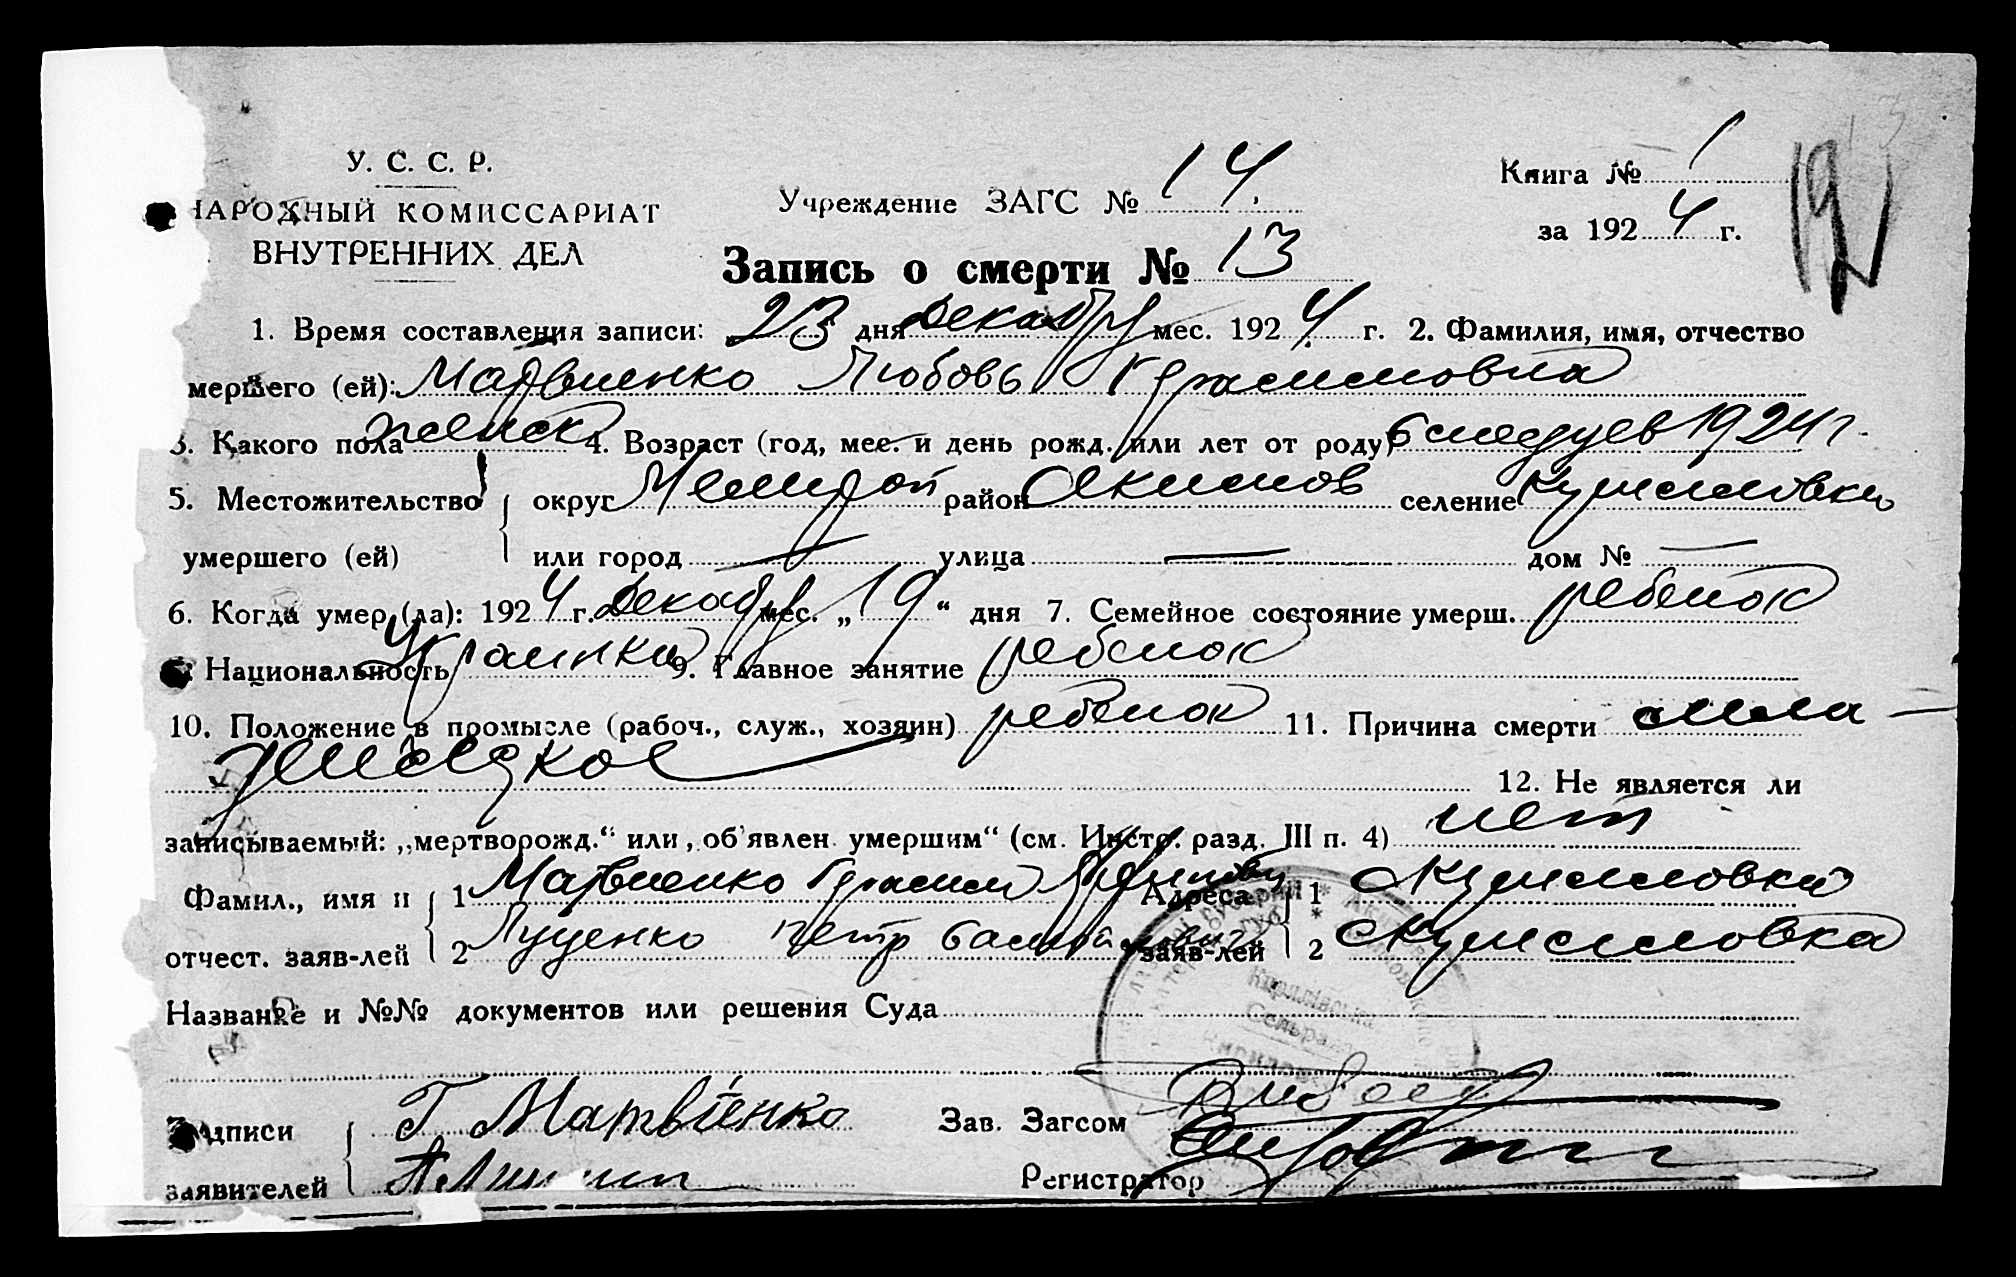 У. С. С. Р.
НАРОДНЫЙ КОМИССАРИАТ
ВНУТРЕННИХ ДЕЛ
Учреждение ЗАГС № 14.
Книга № 1
за 1924 г.
Запись о смерти № 13
1. Время составления записи: 23 дня декабр мес. 1924 г. 2. Фамилия, имя, отчество
мершего (ей): Матвиенко Любовь Герасимовна
3. Какого пола женск 4. Возраст (год, мес. и день рожд. или лет от роду) 1924 г.
5. Местожительство округ Мелитоп район Акимов селение
умершего (ей) или город — улица — дом № —
6. Когда умер (ла): 1924 г. декабр мес. „19“ дня 7. Семейное состояние умерш. ребенок
Национальность Украинка 9. Главное занятие ребенок
10. Положение в промысле (рабоч., служ., хозяин) ребенок 11. Причина смерти мла-
денческое
12. Не является ли
записываемый: „мертворожд.“ или „об'явлен умершим“ (см. Инстр. разд. III п. 4) нет
Фамил., имя и 1 Матвиенко Герасим Адреса 1
отчест. заяв-лей 2 Луценко Петр заяв-лей 2
Название и №№ документов или решения Суда
Подписи Г Матвіенко Зав. Загсом
заявителей Регистратор